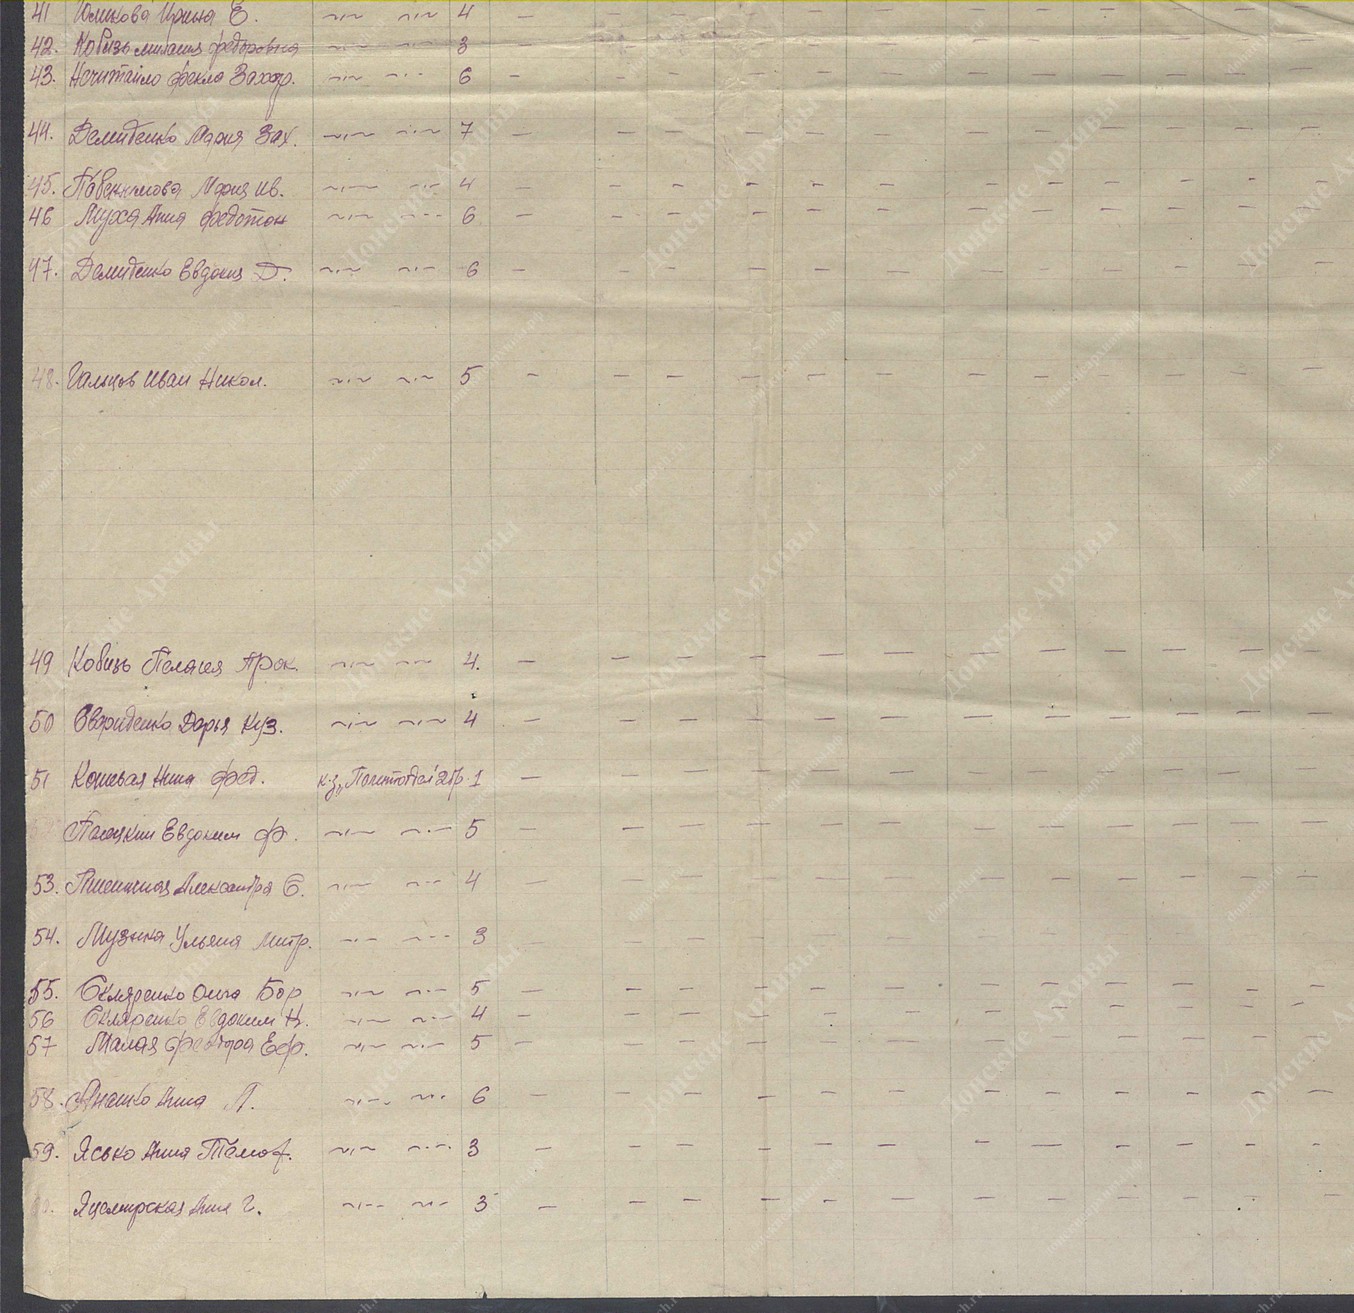 41 Юликова Ирина Е. -"- -"- 4 - - - - - - - - - - - - -
42. Кобизь Мелания Федоровна -"- -"- 3 - - - - - - - - - - - -
43. Нечитайло Фекла Захар. -"- -"- 6 - - - - - - - - - - - - -
44. Демиденко Мария Зах. -"- -"- 7 - - - - - - - - - - - - -
45. Мария Ив. -"- -"- 4 - - - - - - - - - - - - -
46 Муха Анна -"- -"- 6 - - - - - - - - - - - - -
47. Демиденко Евдокия Д. -"- -"- 6 - - - - - - - - - - - - -
48. Гальцов Иван Никол. -"- -"- 5 - - - - - - - - - - - - -
49 Кобизь Пелагея Прок. -"- -"- 4. - - - - - - - - - - - - -
50 Свириденко Дарья Куз. -"- -"- 4 - - - - - - - - - - - - -
51 Кошевая Нина Фед. к-з „Политотдел" 2бр. 1 - - - - - - - - - - - - -
Евдоким Ф. -"- -"- 5 - - - - - - - - - - - - -
53. Пшеничная Александра С. -"- -"- 4 - - - - - - - - - - - - -
54. Музыка Ульяна Митр. -"- -"- 3 - - - - - - - - - - - - -
55. Скляренко Ольга Бор -"- -"- 5 - - - - - - - - - - - - -
56 Скляренко Евдоким Н. -"- -"- 4 - - - - - - - - - - - - -
57 Малая Федора Еф. -"- -"- 5 - - - - - - - - - - - - -
58. Анна Л. -"- -"- 6 - - - - - - - - - - - - -
59. Ясько Анна Тимоф. -"- -"- 3 - - - - - - - - - - - - -
60. Яцемирская Анна Г. -"- -"- 3 - - - - - - - - - - - - -
Донские Архивы
donarch.ru